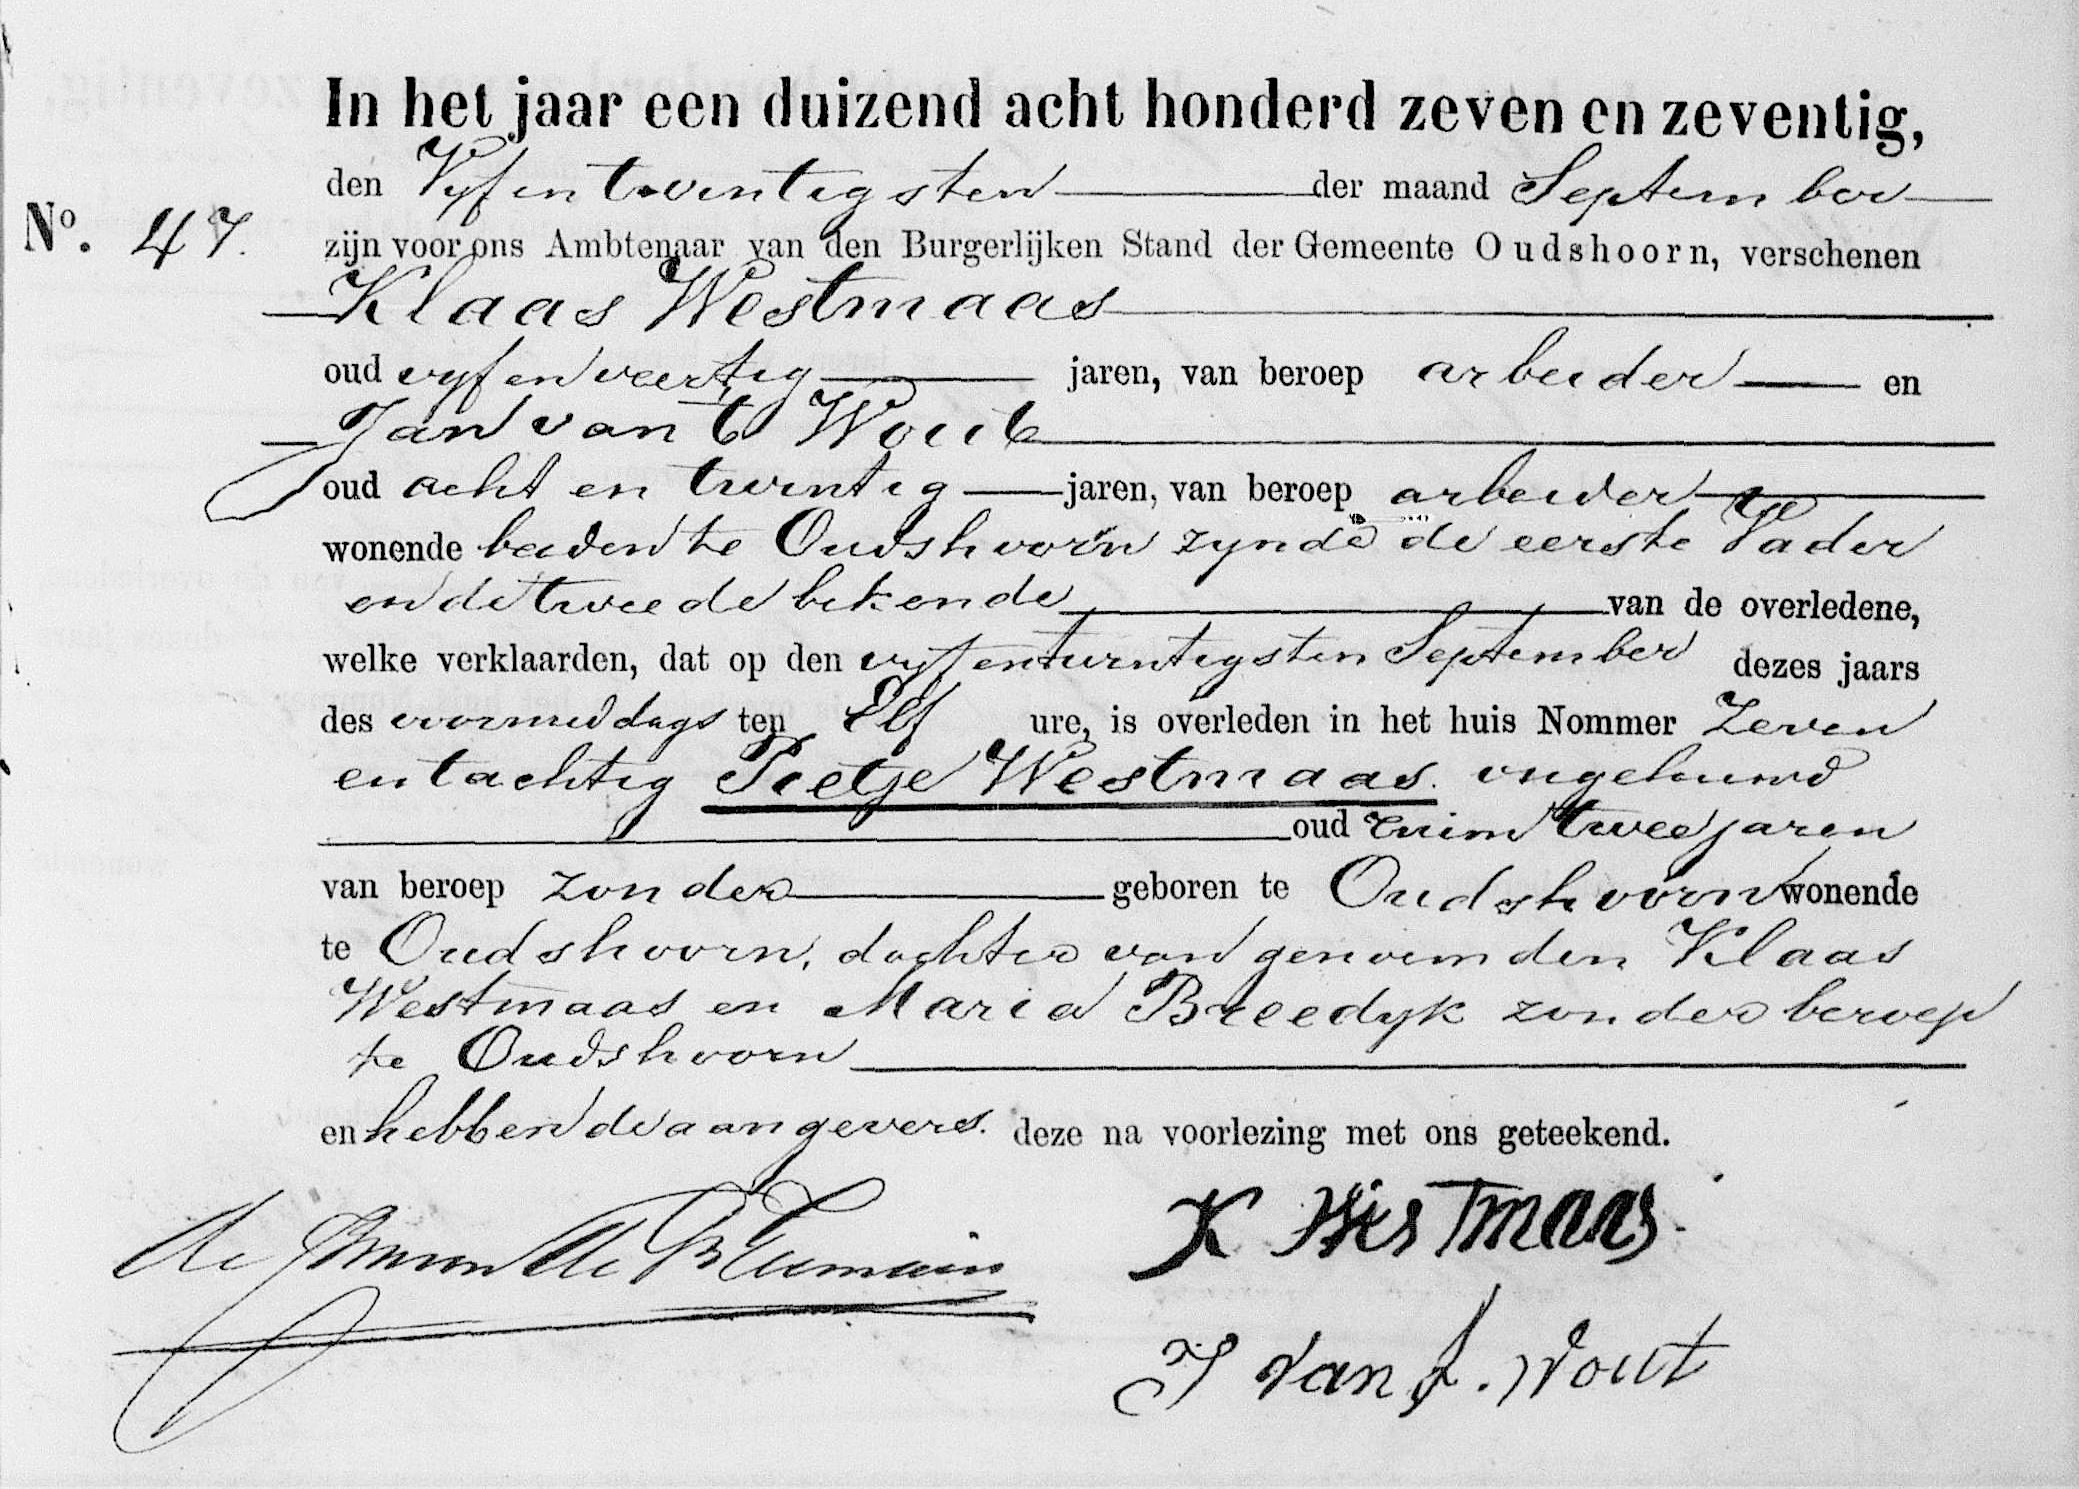 In het jaar een duizend acht honderd zeven en zeventig,
den Vyf en twentigsten der maand September
No. 47.
zijn voor ons Ambtenaar van den Burgerlijken Stand der Gemeente Oudshoorn, verschenen
Klaas Westmaas
oud vyf en veertig jaren, van beroep arbeider en
Jan van t Wout
oud acht en twintig jaren, van beroep arbeider
wonende beiden te Oudshoorn zynde de eerste Vader
en de tweede bekende van de overledene,
welke verklaarden, dat op den vyf en twintigsten September dezes jaars
des voormiddags ten Elf ure, is overleden in het huis Nommer Zeven
en tachtig Pietje Westmaas. ongehuwd
oud ruim twee jaren
van beroep zonder geboren te Oudshoorn wonende
te Oudshoorn, dochter van genoemden Klaas
Westmaas en Maria Breedyk zonder beroep
te Oudshoorn
en hebben de aangevers. deze na voorlezing met ons geteekend.
K Westmaas.
J van t. Wout